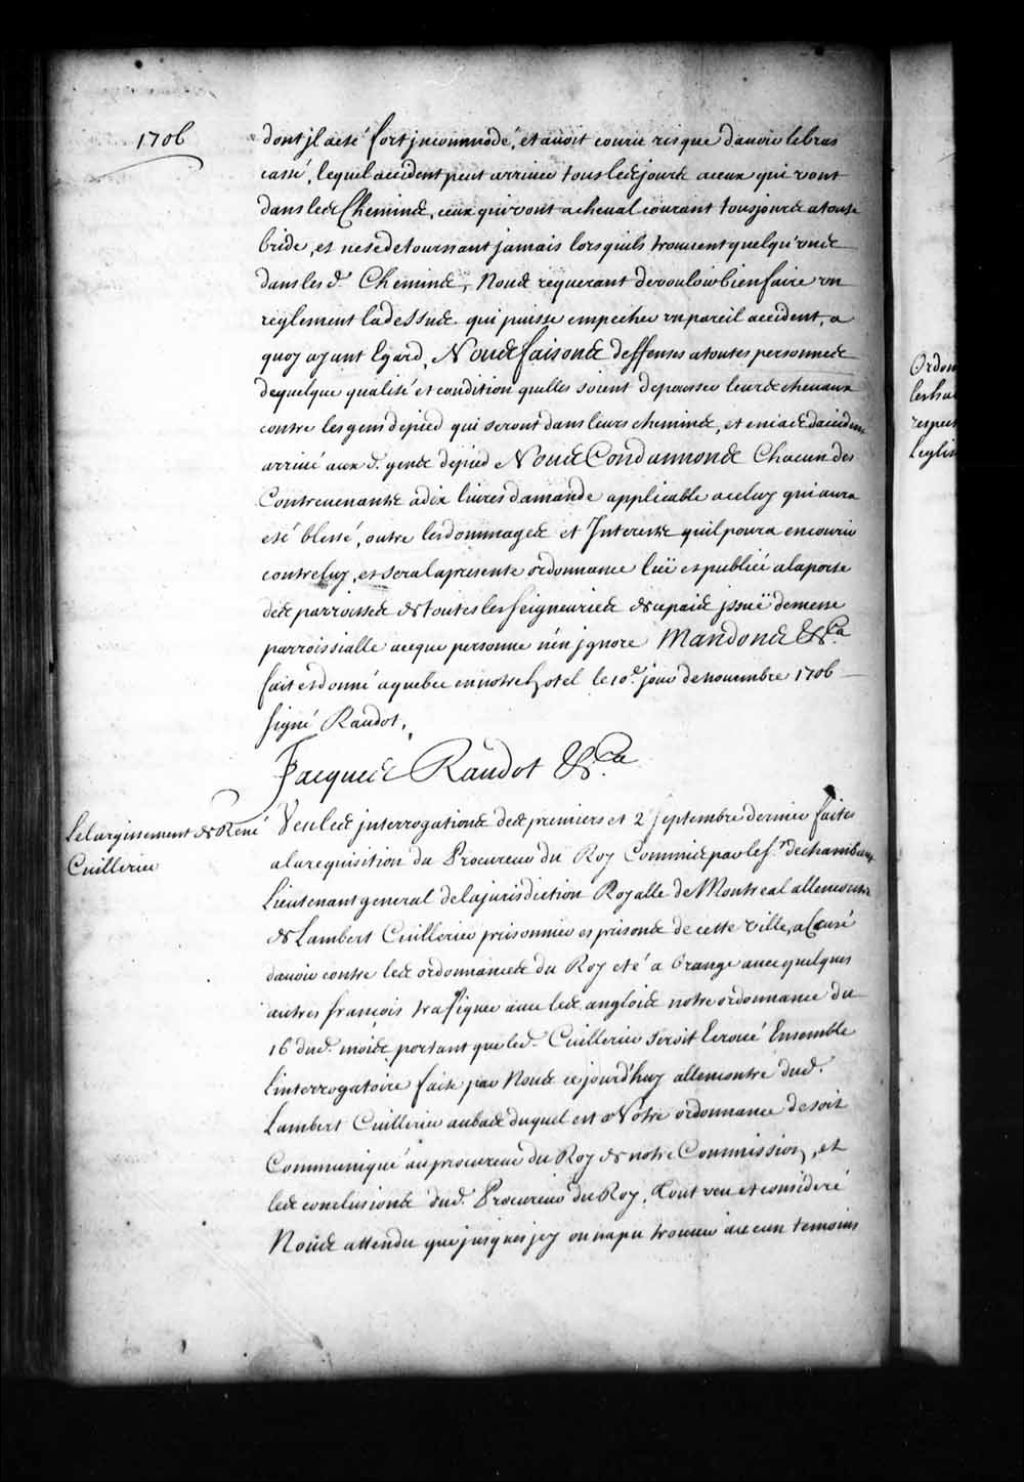 1706
dont jl a esté fort jncommodé, et auoit couru risque dauoir le bras
cassé, lequel accident peut arriuer tous les jours a ceux qui vont
dans les Chemins, ceux qui vont a cheual courant tousjours a toute
bride, et ne se detournant jamais lorsquils trouuent quelqu'uns
dans les d. Chemins, Nous requerant de vouloir bien faire vn
reglement la dessus qui puisse empecher vn pareil accident, a
quoy ayant Egard, Nous faisons deffenses a toutes personnes
de quelque qualité et condition quelles soient de pousser leurs cheuaux
contre les gens de pied qui seront dans leurs chemins, et en cas d'accident
arriué aux d. gens de pied Nous Condamnons Chacun des
Contreuenants a dix liures damande applicable a celuy qui aura
esté blessé, outre les dommages et Interests quil poura encourir
contre luy, et sera la presente ordonnance luë et publiée a la porte
des parroisses de toutes les seigneuries de ce pais jssuë de messe
parroissialle a ce que personne n'en jgnore Mandons &.ca
fait et donné a quebec en notre hotel le 10.e jour de nouembre 1706
signé Raudot,
Jacques Raudot &.ca
Lelargissement de René
Cuillerier
Veu les jnterrogations des premiers et 2 septembre dernier faites
a la requisition du Procureur du Roy Commis par le s.r dechambeurs
Lieutenant general de la jurisdiction Royalle de Montreal allencontre
de Lambert Cuillerier prisonnier es prisons de cette ville, accusé
dauoir contre les ordonnances du Roy eté a Orange auec quelques
autres francois trafiquer auec les anglois notre ordonnance du
16 dud. mois portant que led. Cuillerier seroit Ecroué Ensemble
l'interrogatoire faite par Nous ce jourd'huy allencontre dud.
Lambert Cuillerier au bas duquel est Notre ordonnance de soit
Communiqué au procureur du Roy de notre Commission, et
les conclusions dud. Procureur du Roy, Tout veu et consideré
Nous attendu que jusques jcy on na pu trouuer aucun temoins
Ordon
les ha
respect
l'eglis